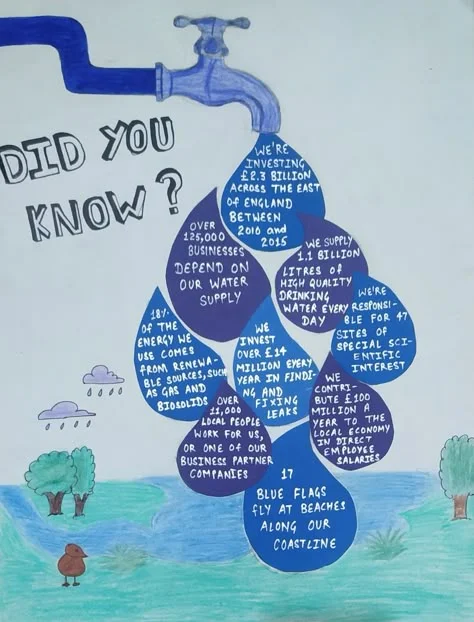 DID YOU
KNOW?
WE'RE
INVESTING
£2.3 BILLION
ACROSS THE EAST
OF ENGLAND
BETWEEN
2010 and
2015
OVER
125,000
BUSINESSES
DEPEND ON
OUR WATER
SUPPLY
WE SUPPLY
1.1 BILLION
LITRES OF
HIGH QUALITY
DRINKING
WATER EVERY
DAY
WE'RE
RESPONSI-
BLE FOR 47
SITES OF
SPECIAL SCI-
ENTIFIC
INTEREST
18%
OF THE
ENERGY WE
USE COMES
FROM RENEWA-
BLE SOURCES, SUCH
AS GAS AND
BIOSOLIDS
WE
INVEST
OVER £14
MILLION EVERY
YEAR IN FINDI-
NG AND
FIXING
LEAKS
WE
CONTRI-
BUTE £100
MILLION A
YEAR TO THE
LOCAL ECONOMY
IN DIRECT
EMPLOYEE
SALARIES
OVER
11,000
LOCAL PEOPLE
WORK FOR US,
OR ONE OF OUR
BUSINESS PARTNER
COMPANIES
17
BLUE FLAGS
FLY AT BEACHES
ALONG OUR
COASTLINE